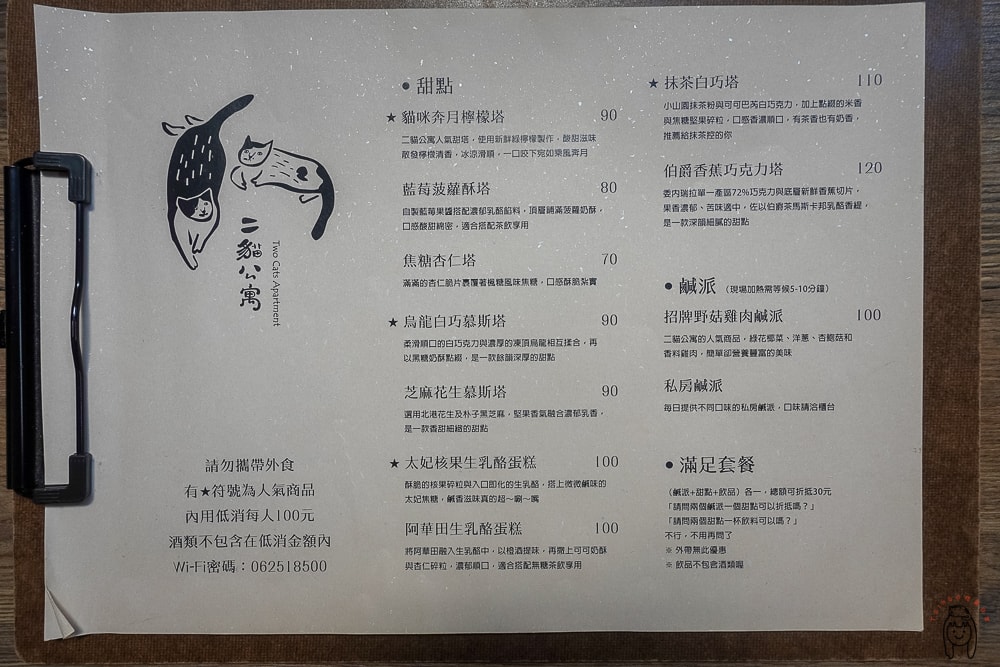 二貓公寓
Two Cats Apartment
請勿攜帶外食
有★符號為人氣商品
內用低消每人100元
酒類不包含在低消金額內
Wi-Fi密碼：062518500
● 甜點
★ 貓咪奔月檸檬塔 90
二貓公寓人氣甜塔，使用新鮮綠檸檬製作，酸甜滋味
散發檸檬清香，冰涼滑順，一口咬下宛如乘風奔月
藍莓菠蘿酥塔 80
自製藍莓果醬搭配濃郁乳酪餡料，頂層鋪滿菠蘿奶酥，
口感酸甜綿密，適合搭配茶飲享用
焦糖杏仁塔 70
滿滿的杏仁脆片裹覆著楓糖風味焦糖，口感酥脆紮實
★ 烏龍白巧慕斯塔 90
柔滑順口的白巧克力與濃厚的凍頂烏龍相互揉合，再
以黑糖奶酥點綴，是一款餘韻深厚的甜點
芝麻花生慕斯塔 90
選用北港花生及朴子黑芝麻，堅果香氣融合濃郁乳香，
是一款香甜細緻的甜點
★ 太妃核果生乳酪蛋糕 100
酥脆的核果碎粒與入口即化的生乳酪，搭上微微鹹味的
太妃焦糖，鹹香滋味真的超～唰～嘴
阿華田生乳酪蛋糕 100
將阿華田融入生乳酪中，以橙酒提味，再撒上可可奶酥
與杏仁碎粒，濃郁順口，適合搭配無糖茶飲享用
★ 抹茶白巧塔 110
小山園抹茶粉與可可巴芮白巧克力，加上點綴的米香
與焦糖堅果碎粒，口感香濃順口，有茶香也有奶香，
推薦給抹茶控的你
伯爵香蕉巧克力塔 120
委內瑞拉單一產區72%巧克力與底層新鮮香蕉切片，
果香濃郁、苦味適中，佐以伯爵茶馬斯卡邦乳酪香緹，
是一款深韻細膩的甜點
● 鹹派 （現場加熱需等候5-10分鐘）
招牌野菇雞肉鹹派 100
二貓公寓的人氣商品，綠花椰菜、洋蔥、杏鮑菇和
香料雞肉，簡單卻營養豐富的美味
私房鹹派
每日提供不同口味的私房鹹派，口味請洽櫃台
● 滿足套餐
（鹹派+甜點+飲品）各一，總額可折抵30元
「請問兩個鹹派一個甜點可以折抵嗎？」
「請問兩個甜點一杯飲料可以嗎？」
不行，不用再問了
※ 外帶無此優惠
※ 飲品不包含酒類喔